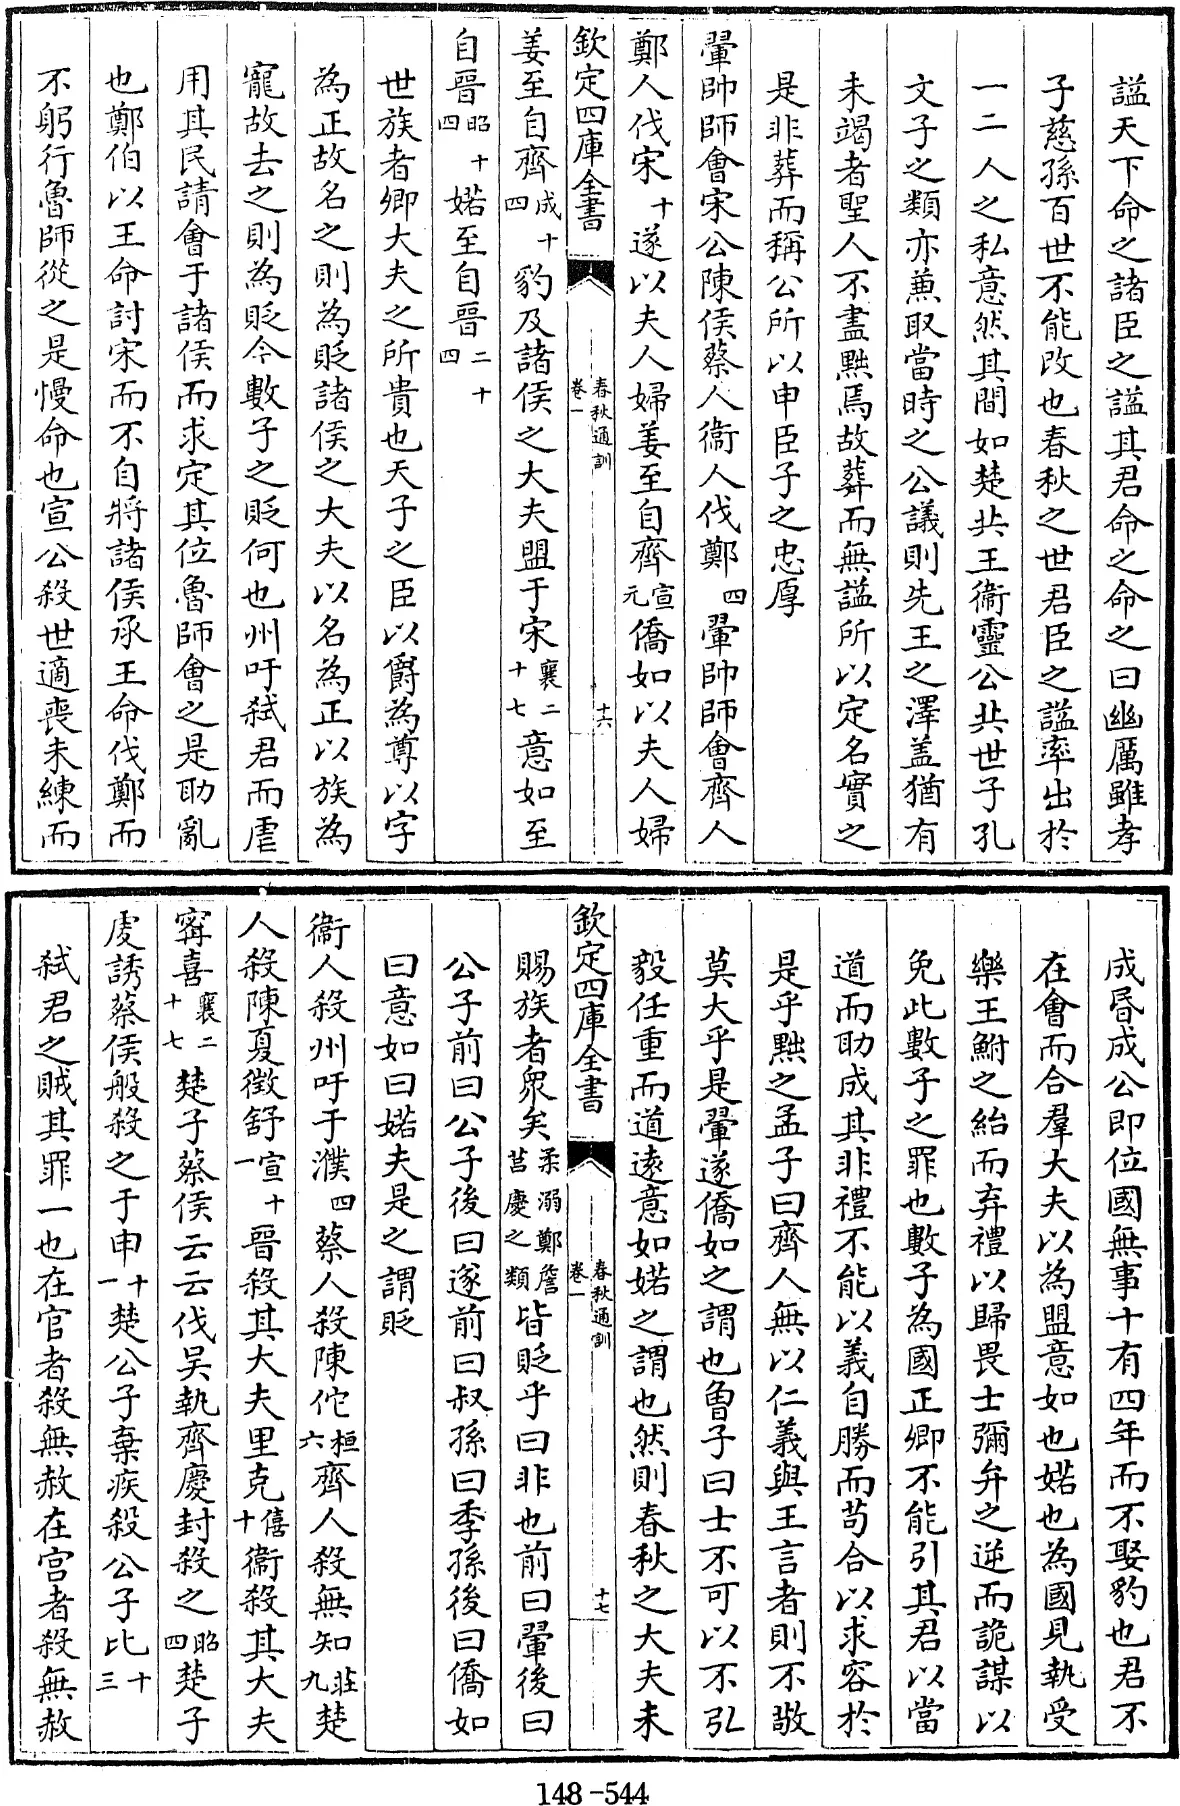 謚天下命之諸臣之謚其君命之命之曰幽厲雖孝
子慈孫百世不能改也春秋之世君臣之謚率出於
一二人之私意然其間如楚共王衞靈公共世子孔
文子之類亦兼取當時之公議則先王之澤盖猶有
未竭者聖人不盡黜焉故葬而無謚所以定名實之
是非葬而稱公所以申臣子之忠厚
翬帥師會宋公陳侯蔡人衞人伐鄭四翬帥師會齊人
鄭人伐宋十遂以夫人婦姜至自齊宣元僑如以夫人婦
欽定四庫全書 春秋通訓 卷一 十六
姜至自齊成十四豹及諸侯之大夫盟于宋襄二十七意如至
自晉昭十四婼至自晉二十四
世族者卿大夫之所貴也天子之臣以爵為尊以字
為正故名之則為貶諸侯之大夫以名為正以族為
寵故去之則為貶今數子之貶何也州吁弑君而虐
用其民請會于諸侯而求定其位魯師會之是助亂
也鄭伯以王命討宋而不自將諸侯承王命伐鄭而
不躬行魯師從之是慢命也宣公殺世適喪未練而
成昏成公即位國無事十有四年而不娶豹也君不
在會而合羣大夫以為盟意如也婼也為國見執受
樂王鮒之紿而弃禮以歸畏士彌弁之逆而詭謀以
免此數子之罪也數子為國正卿不能引其君以當
道而助成其非禮不能以義自勝而苟合以求容於
是乎黜之孟子曰齊人無以仁義與王言者則不敬
莫大乎是翬遂僑如之謂也曾子曰士不可以不弘
毅任重而道遠意如婼之謂也然則春秋之大夫未
欽定四庫全書 春秋通訓 卷一 十七
賜族者衆矣柔溺鄭詹莒慶之類皆貶乎曰非也前曰翬後曰
公子前曰公子後曰遂前曰叔孫曰季孫後曰僑如
曰意如曰婼夫是之謂貶
衞人殺州吁于濮四蔡人殺陳佗桓六齊人殺無知莊九楚
人殺陳夏徵舒宣十一晉殺其大夫里克僖十衞殺其大夫
寗喜襄二十七楚子蔡侯云云伐吴執齊慶封殺之昭四楚子
虔誘蔡侯般殺之于申十一楚公子棄疾殺公子比十三
弑君之賊其罪一也在官者殺無赦在宫者殺無赦
148-544